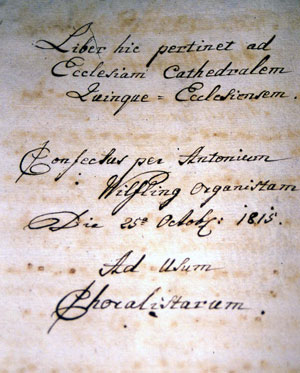 Liber hic pertinet ad
Ecclesiam Cathedralem
Quinque = Ecclesiensem.
Confectus per Antonium
Wilfling Organistam
Die 25ª Octobṛ: 1815.
Ad Usum
Choralistarum.